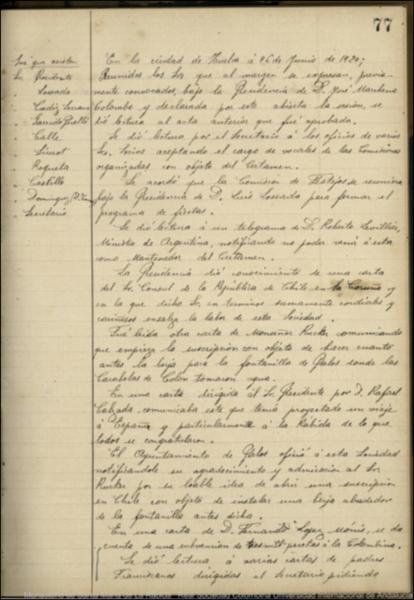 77
Sres que asisten
Sr Presidente
Losada
Cádiz Serrano
Garrido Perelló
Calle
Siurot
Requeta
Castillo
Domínguez
Secretario
En la ciudad de Huelva á 26 de Junio de 1920;
Reunidos los Sres que al margen se expresan, previa-
mente convocados, bajo la Presidencia de D. José Marchena
Colombo y declarada por este abierta la sesion, se
dió lectura al acta anterior que fué aprobada.
Se dió lectura por el Secretario á los oficios de varios
Srs. Socios aceptando el cargo de vocales de las Comisiones
organizadas con objeto del Certamen.
Se acordó que la Comisión de Festejos se reuniera
bajo la Presidencia de D. Luis Losada para formar el
programa de fiestas.
Se dió lectura á un telegrama de D. Roberto Levillier,
Ministro de Argentina, notificando no poder venir á esta
como Mantenedor del Certamen.
La Presidencia dió conocimiento de una carta
del Sr. Consul de la República de Chile en la Coruña y
en la que dicho Sr. en terminos sumamente cordiales y
cariñosos ensalza la labor de esta Sociedad.
Fué leida otra carta de Monseñor Rucker comunicando
que empieza la suscripción con objeto de hacer cuanto
antes la verja para la fontanilla de Palos donde las
Carabelas de Colón tomaron agua.
En una carta dirigida al Sr. Presidente por D. Rafael
Calzada, comunicaba este que tenia proyectado un viaje
á España y particularmente á la Rábida de lo que
todos se congratularon.
El Ayuntamiento de Palos ofició á esta Sociedad
notificándole su agradecimiento y admiración al Sr.
Rucker por su loable idea de abrir una suscripcion
en Chile con objeto de instalar una verja alrededor
de la fontanilla antes dicha.
En una carta de D. Fernando Lopez Monis, se da
cuenta de una subvencion de tres mil pesetas á la Colombina.
Se dió lectura á varias cartas de padres
Franciscanos dirigidas al Secretario pidiendo